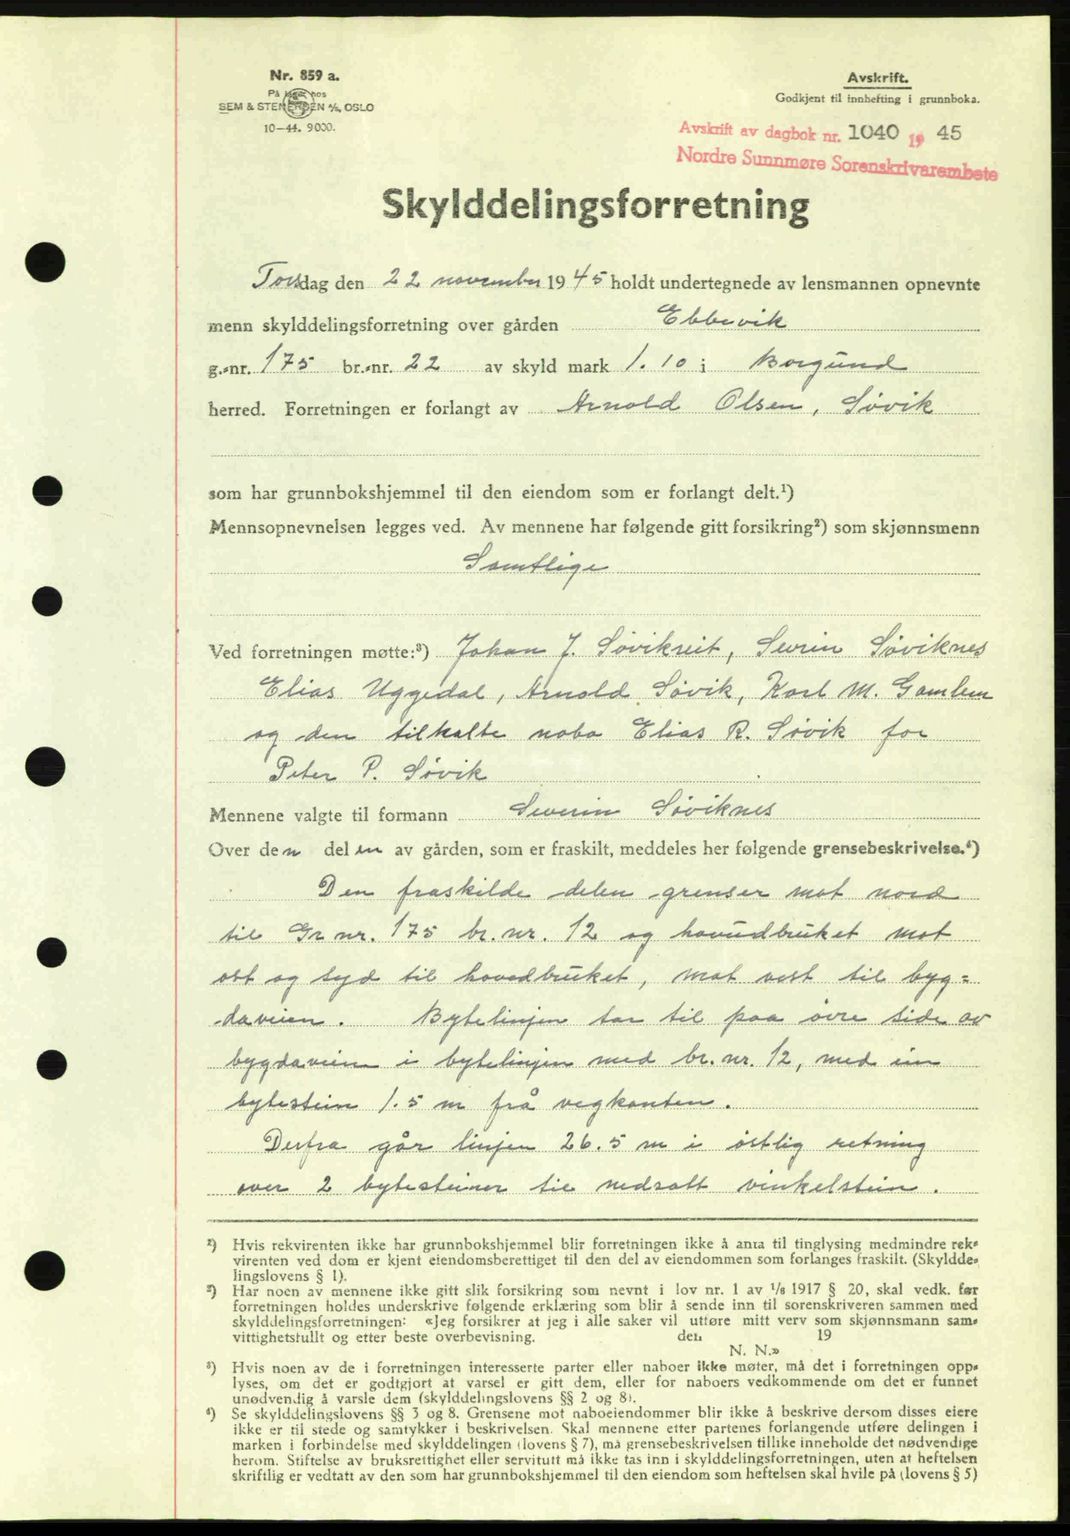 Nr. 859 a.
På lager hos
SEM & STENERSEN A/S, OSLO
10-44. 9000.
Avskrift.
Godkjent til innhefting i grunnboka.
Avskrift av dagbok nr. 1040 19 45
Nordre Sunnmøre Sorenskrivarembete
Skylddelingsforretning
Torsdag den 22 november 1945 holdt undertegnede av lensmannen opnevnte
menn skylddelingsforretning over gården Ebbevik
g.-nr. 175 br.-nr. 22 av skyld mark 1.10 i Borgund
herred. Forretningen er forlangt av Arnold Olsen, Søvik
som har grunnbokshjemmel til den eiendom som er forlangt delt.¹)
Mennsopnevnelsen legges ved. Av mennene har følgende gitt forsikring²) som skjønnsmenn
Samtlige
Ved forretningen møtte:³) Johan J. Søvikreit, Sevrin Søviknes
Elias Uggedal, Arnold Søvik, Karl M. Gamlem
og den tilkalte nabo Elias R. Søvik for
Peter P. Søvik
Mennene valgte til formann Severin Søviknes
Over den delen av gården, som er fraskilt, meddeles her følgende grensebeskrivelse.⁴)
Den fraskilde delen grenser mot nord
til Gr nr. 175 br. nr. 12 og hovudbruket mot
ost og syd til hovedbruket, mot vest til byg=
daveien. Bytelinjen tar til paa øvre side av
bygdaveien i bytelinjen med br. nr. 12, med ein
bytestein 1.5 m frå vegkanten.
Derfra går linjen 26.5 m i østlig retning
over 2 bytesteiner til nedsatt vinkelstein.
²) Hvis rekvirenten ikke har grunnbokshjemmel blir forretningen ikke å anta til tinglysing medmindre rek-
virenten ved dom er kjent eiendomsberettiget til den del av eiendommen som forlanges fraskilt. (Skyldde-
lingslovens § 1).
²) Har noen av mennene ikke gitt slik forsikring som nevnt i lov nr. 1 av 1/6 1917 § 20, skal vedk. før
forretningen holdes underskrive følgende erklæring som blir å sende inn til sorenskriveren sammen med
skylddelingsforretningen: «Jeg forsikrer at jeg i alle saker vil utføre mitt verv som skjønnsmann sam-
vittighetsfullt og etter beste overbevisning. den 19
N. N.»
³) Hvis noen av de i forretningen interesserte parter eller naboer ikke møter, må det i forretningen opp-
lyses, om det er godtgjort at varsel er gitt dem, eller for naboers vedkommende om det er funnet
unødvendig å varsle dem (skylddelingslovens §§ 2 og 8).
⁴) Se skylddelingslovens §§ 3 og 8. Grensene mot naboeiendommer blir ikke å beskrive dersom disses eiere
ikke er til stede og samtykker i beskrivelsen. Skal mennene etter partenes forlangende utføre delingen i
marken i forbindelse med skylddelingen (lovens § 7), må grensebeskrivelsen tillike inneholde det nødvendige
herom. Stiftelse av bruksrettighet eller servitutt må ikke tas inn i skylddelingsforretningen, uten at heftelsen
skriftlig er vedtatt av den som har grunnbokshjemmel til den eiendom som heftelsen skal hvile på (lovens § 5)